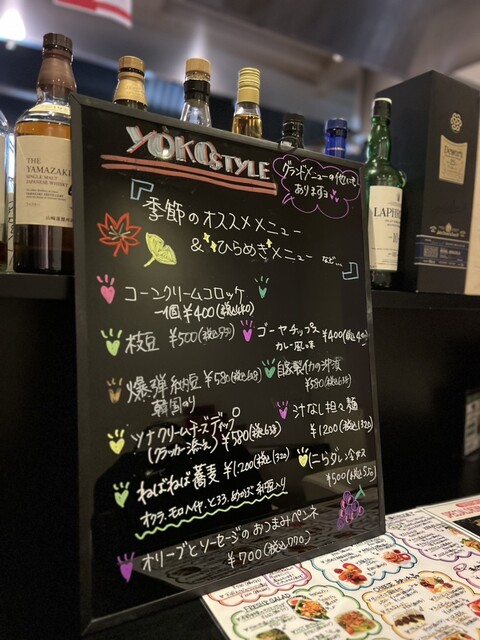 THE
YAMAZAKI
SINGLE MALT
JAPANESE WHISKY
YOKOSTYLE
グランドメニューの他にも
あります
季節のオススメメニュー
& ひらめきメニュー など…
コーンクリームコロッケ
一個 ¥400(税込440)
枝豆 ¥500(税込550)
ゴーヤチップス
カレー風味 ¥400(税込440)
爆弾納豆 ¥580(税込638)
韓国のり
自家製イカの沖漬
¥580(税込638)
ツナクリームチーズディップ
(クラッカー添え) ¥580(税込638)
汁なし担々麺
¥1200(税込1320)
ねばねば蕎麦 ¥1200(税込1320)
オクラ、モロヘイヤ、とろろ、めかぶ、納豆入り
¥500(税込550)
オリーブとソーセージのおつまみペンネ
¥700(税込770)
LAPHROAIG
10
Dewar's
FRESH SALAD